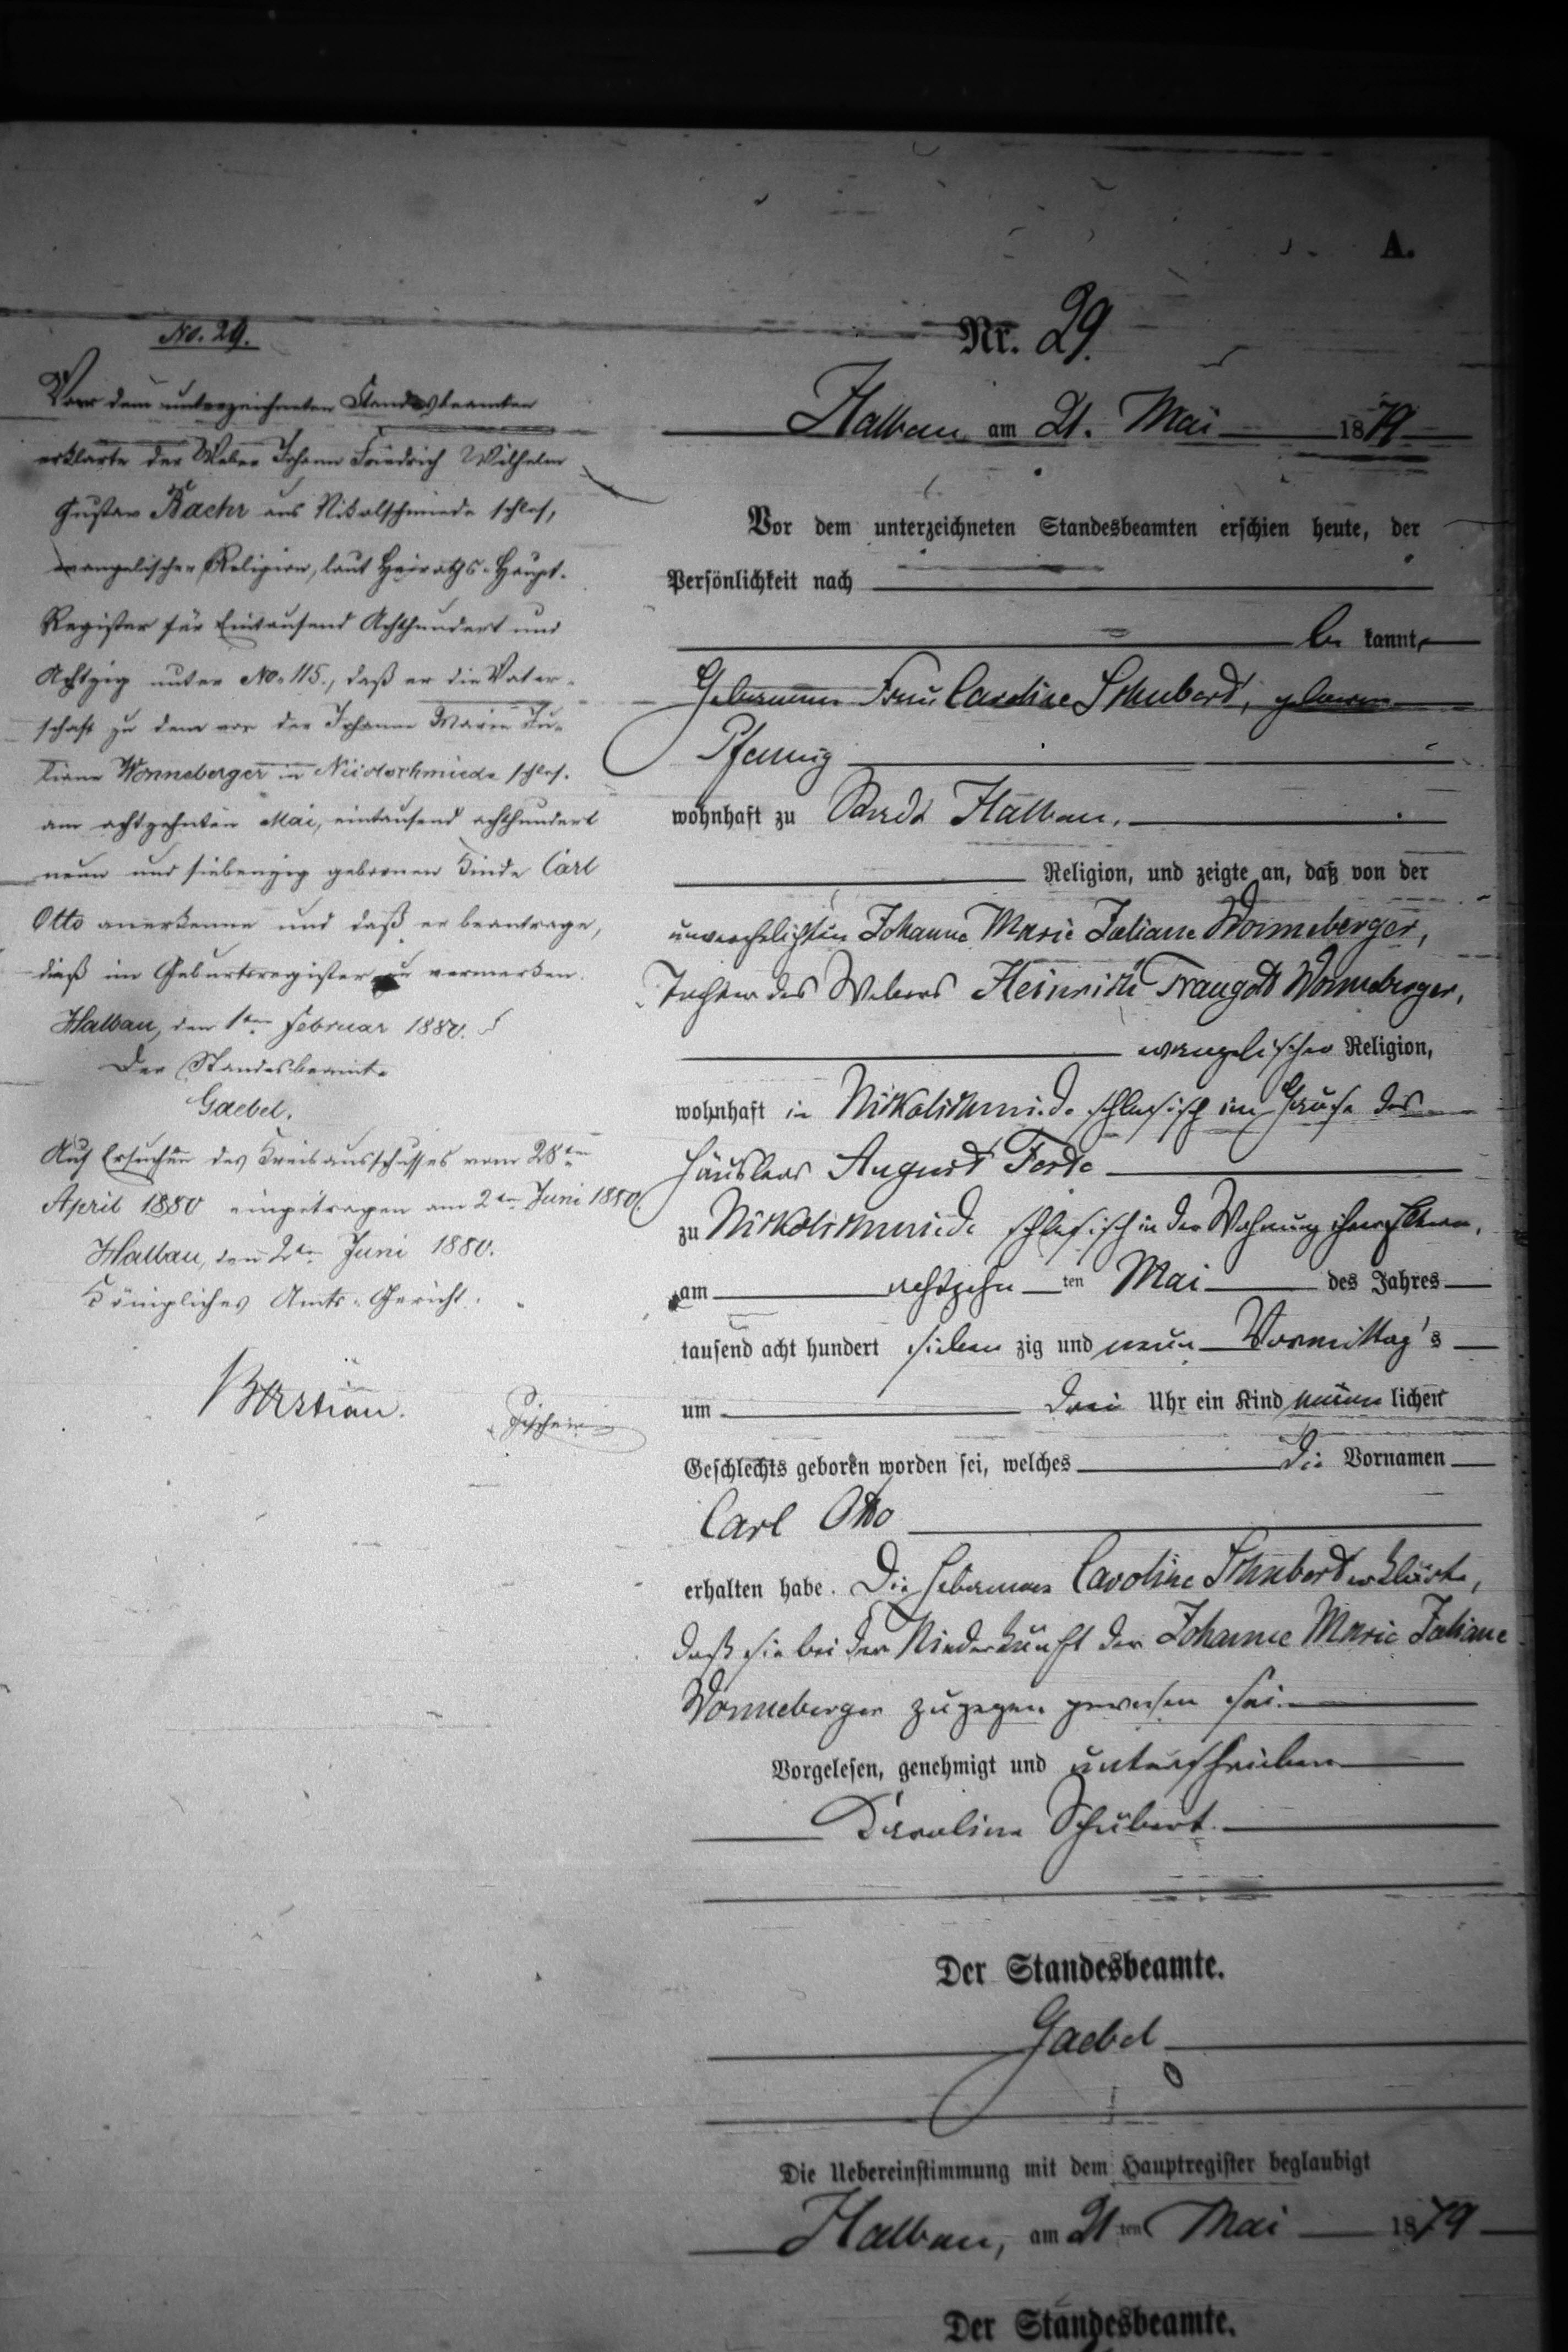 No. 29.
Vor dem unterzeichneten Standesbeamten
erklärte der Weber Johann Friedrich Wilhelm
Gustav Baehr aus Nikolschmiede schles,
evangelischer Religion, laut Heiraths-Haupt-
Register für Eintausend Achthundert und
Achtzig unter No. 115., daß er die Vater-
schaft zu dem von der Johanne Marie Ju-
liane Wonneberger in Nicolschmiede schles.
am achtzehnten Mai, eintausend achthundert
neun und siebenzig gebornen Kinde Carl
Otto anerkenne und daß er beantrage,
dieß im Geburtsregister zu vermerken.
Halbau, den 1ten Februar 1880.
Der Standesbeamte
Gaebel.
Auf Ersuchen des Kreisausschusses vom 28ten
April 1880 eingetragen am 2ten Juni 1880.
Halbau, den 2ten Juni 1880.
Königliches Amts-Gericht.
A.
Nr. 29.
Halbau am 21. Mai 1879
Vor dem unterzeichneten Standesbeamten erschien heute, der
Persönlichkeit nach
be kannt,
Hebamme Frau Caroline Schubert, geborne
Pfennig
wohnhaft zu Stadt Halbau,
Religion, und zeigte an, daß von der
unverehelichten Johanne Marie Juliane Wonneberger,
Tochter des Webers Heinrich Traugott Wonneberger,
evangelischer Religion,
wohnhaft in Nikolschmiede schlesisch im Hause des
Häuslers August
zu Nikolschmiede schlesisch in der Wohnung ihrer Eltern,
am achtzehn ten Mai des Jahres
tausend acht hundert sieben zig und neun Vormittag's
um drei Uhr ein Kind männ lichen
Geschlechts geboren worden sei, welches die Vornamen
Carl Otto
erhalten habe. Die Hebamme Caroline Schubert erklärte,
daß sie bei der Niederkunft der Johanne Marie Juliane
Wonneberger zugegen gewesen sei.
Vorgelesen, genehmigt und unterschrieben
Karoline Schubert.
Der Standesbeamte.
Gaebel
Die Uebereinstimmung mit dem Hauptregister beglaubigt
Halbau, am 21ten Mai 1879
Der Standesbeamte.